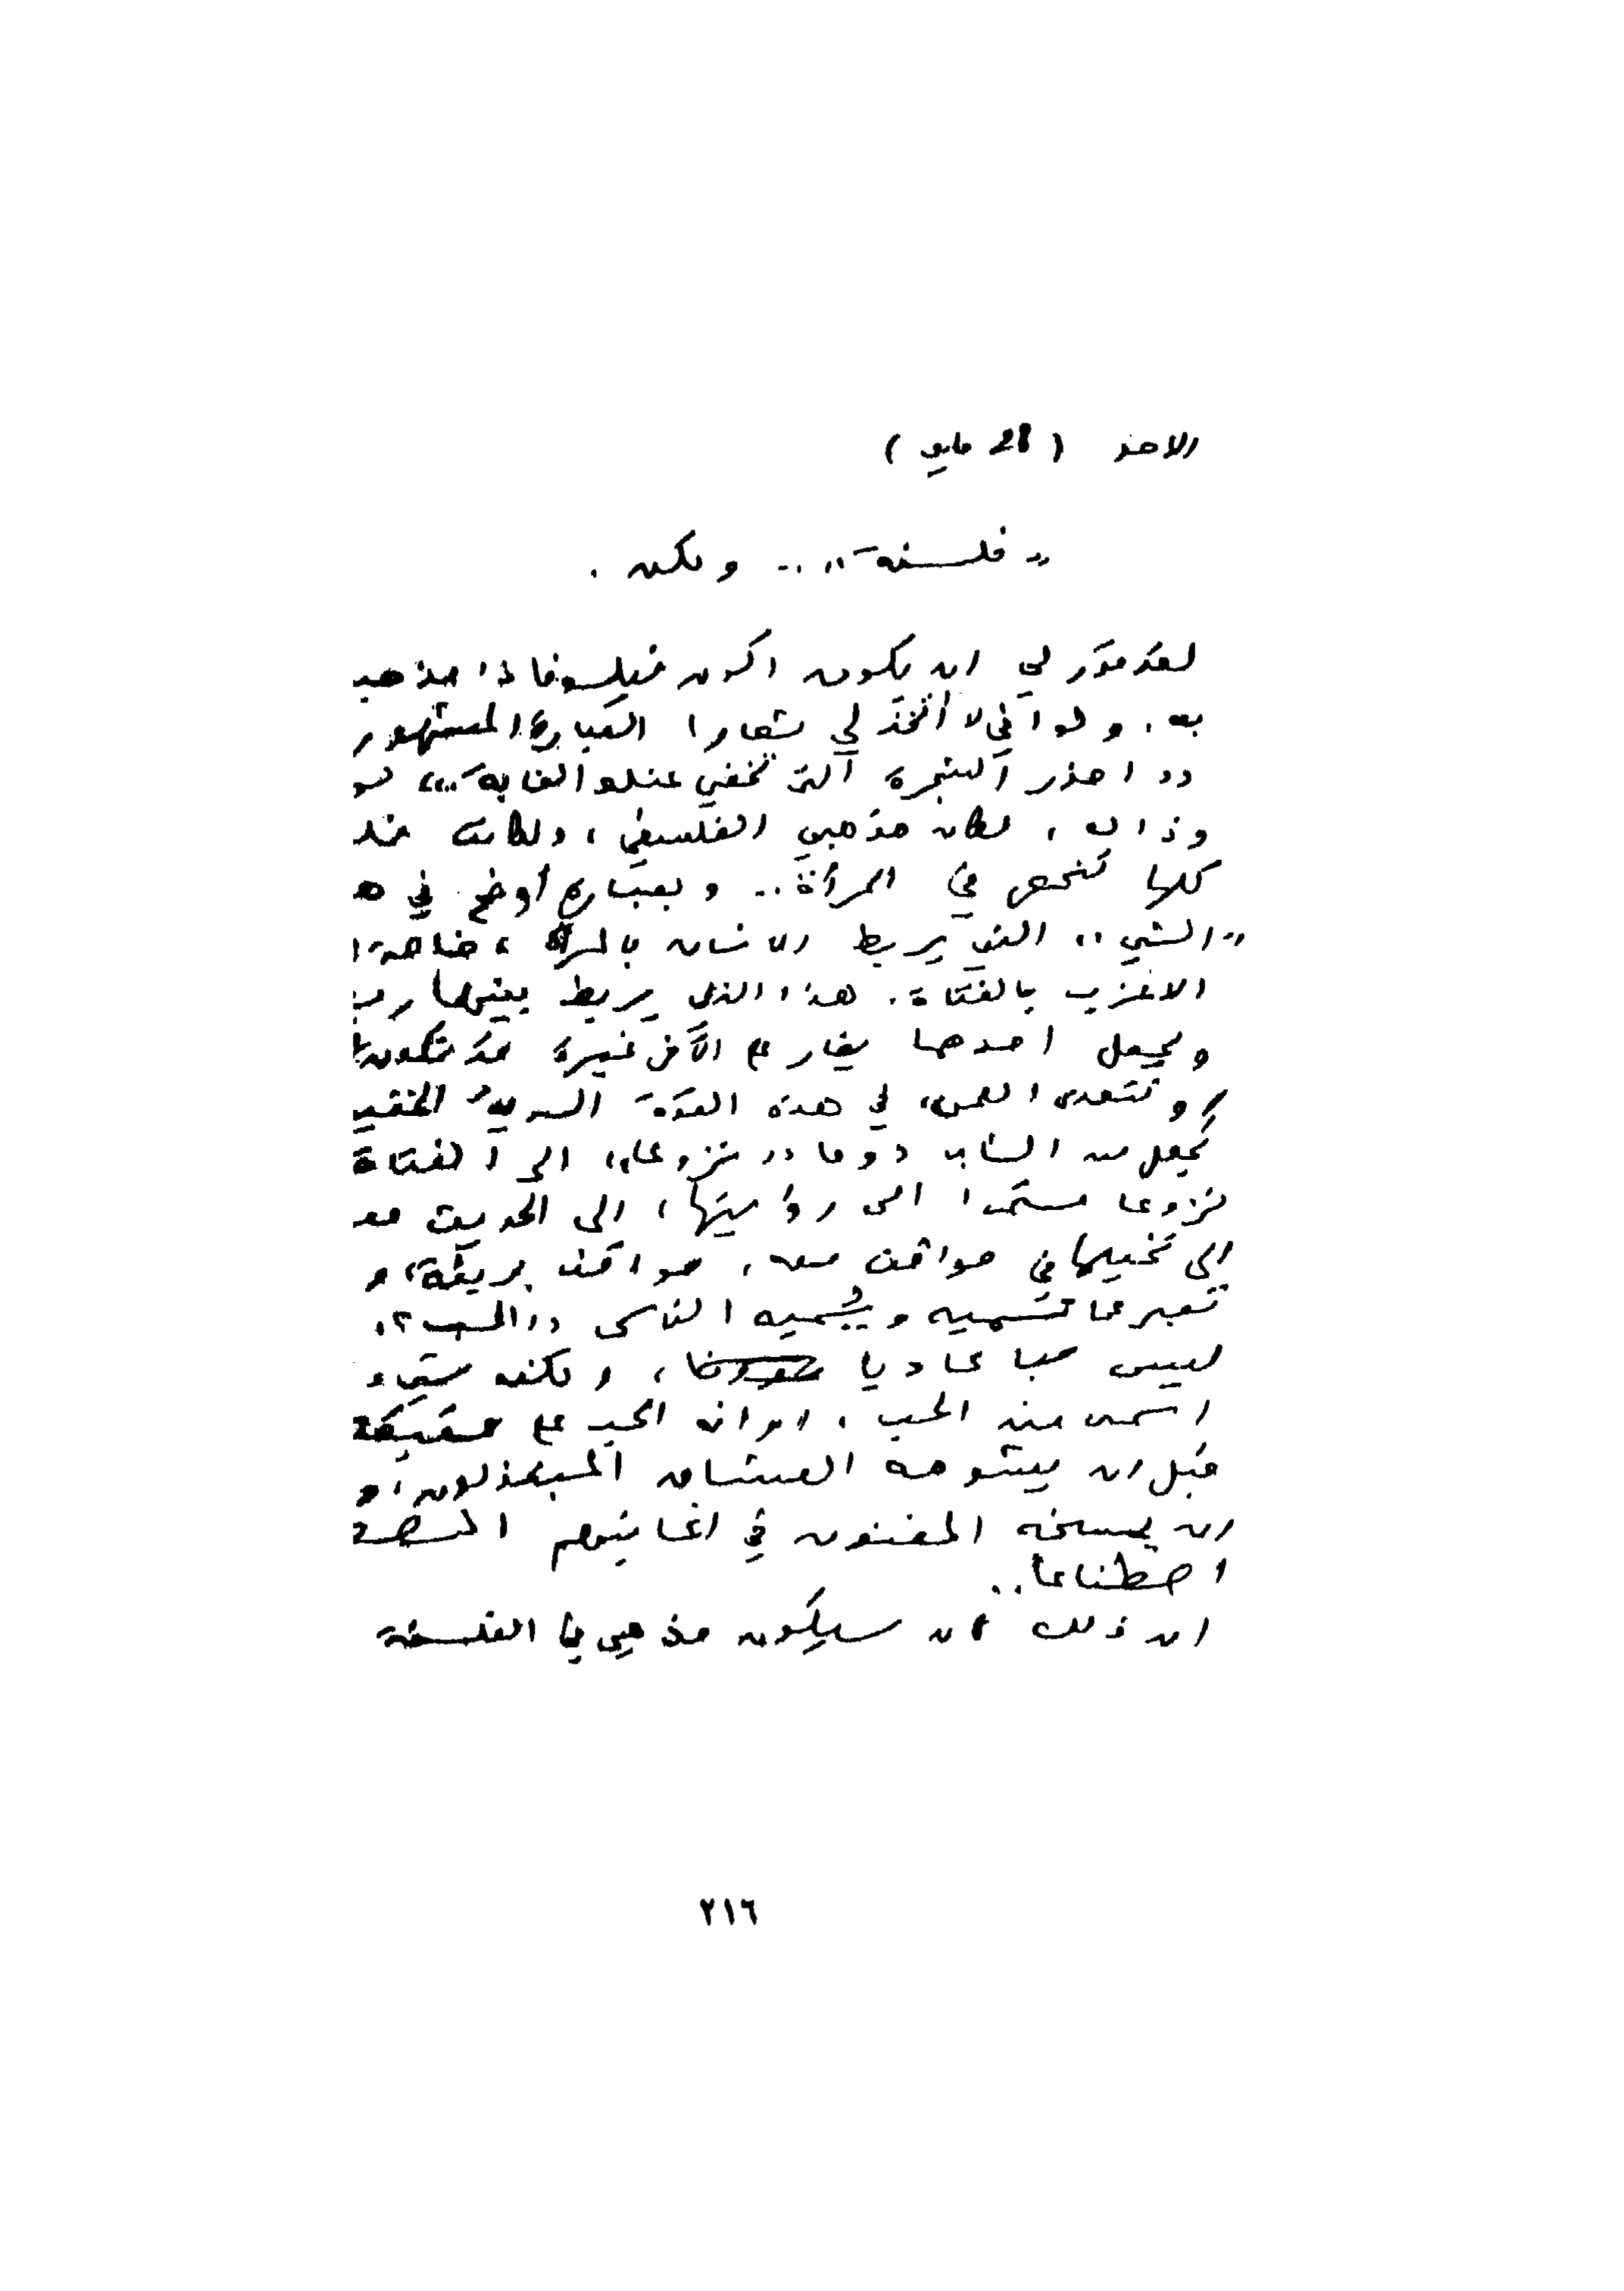 الاحد ( 28 مايو )
" فلسفة " .. ولكن .
لقد قدر لي ان يكون اكون فيلسوفا ذا مذهب
به . ولو اني لا أتخذ لي شعارا العبارة المشهور
" احذر الشجرة التي تخفي عنك الغابة .. " لو
وذاك ، لكان مذهبي الفلسفي ، ولكانت فلـ
كلها تنحصر في المرأة .. وبعبارة أوضح في هـ
" الشيء " الذي يربط الانسان بالمرأة ، خاصة ا
الاعزب بالفتاة . هذا الذي يربط بينهما ربـ
ويجعل احدهما يغار على الآخر غيرة قد تكون
وتتعدى في هذه القوة السرية الخفيـ
تجعل من الشاب دوما " نزوعا " الى الفتاة
نزوعا مستمرا الى رؤيتها ، الى الحديث معـ
الى تخيلها في مواقف معه ، مواقف بريئة ، و
تعبر عما تسميه ويسميه الناس " الحب " .
ليس حبا عاديا ، ولكنه شيء
اسمى من الحب ، او انه الحب على حقيقـ
قبل ان يشوهه العشاق المبتذلون ، و
ان يمسخه المغنون في اغانيهم المصـ
اصطناعا ..
ان ذلك ان سيكون مذهبي في الفلسفة
٢١٦